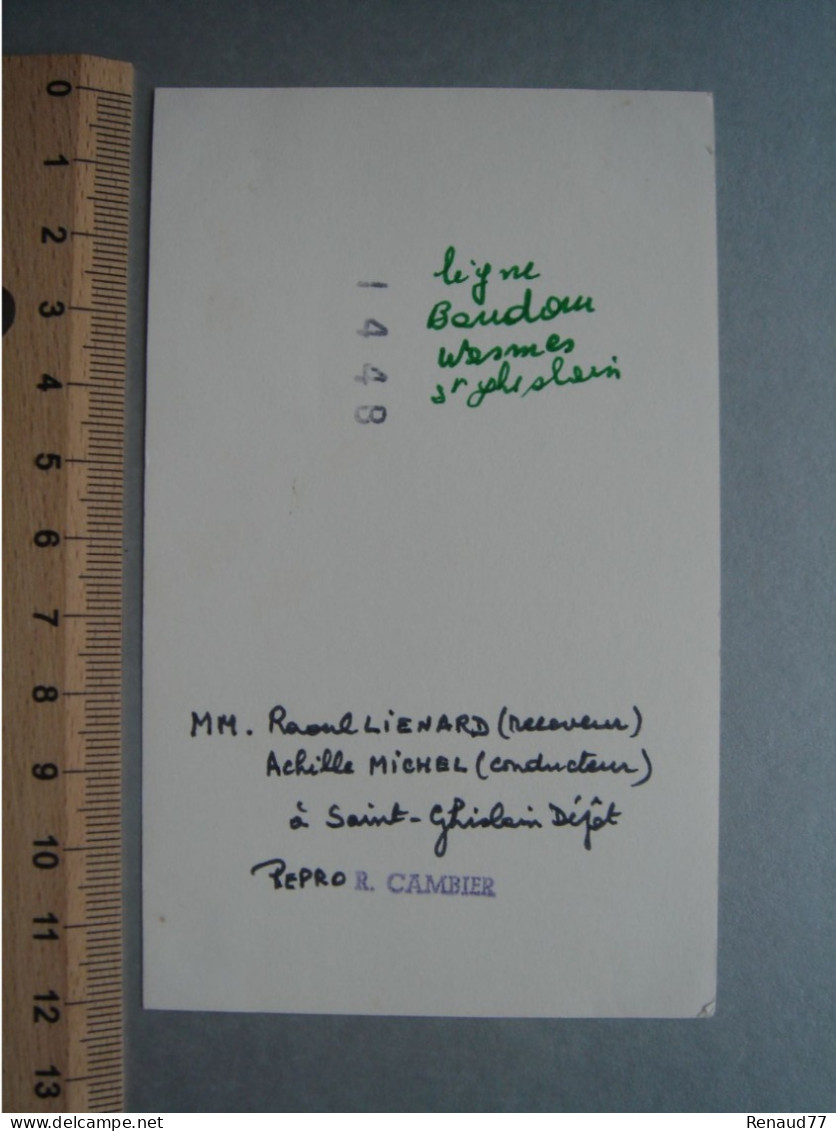 0
1
2
3
4
5
6
7
8
9
10
11
12
13
1448
ligne
Baudour
Wasmes
St Ghislain
MM. Raoul LIENARD (receveur)
Achille MICHEL (conducteur)
à Saint-Ghislain Dépôt
REPRO R. CAMBIER
delcampe.net
Renaud77